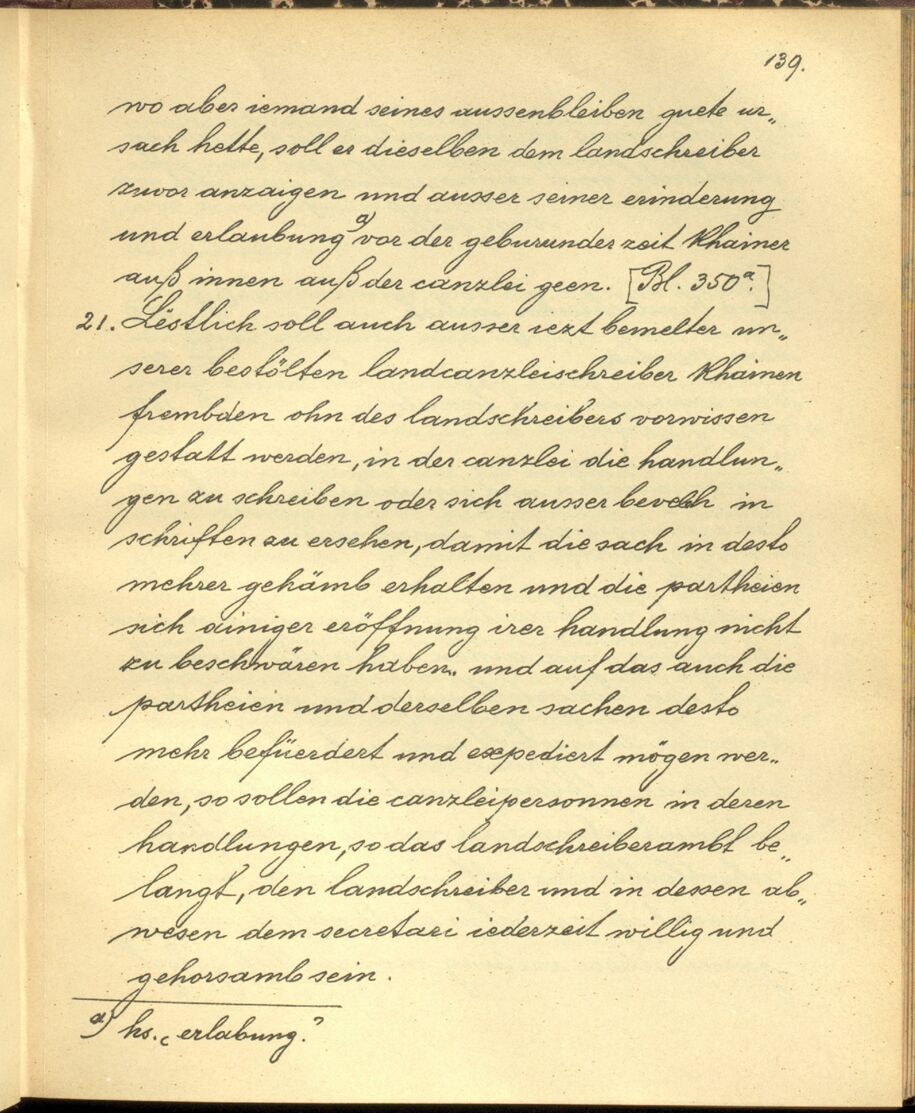 139.
wo aber iemand seines aussenbleiben guete ur„
sach hette, soll er dieselben dem landschreiber
zuvor anzaigen und ausser seiner erinderung
und erlaubung a) vor der geburunder zeit khainer
auß innen auß der canzlei geen. [Bl. 350a.]
21. Lëstlich soll auch ausser iezt bemelter un„
serer bestölten landcanzleischreiber khainen
frembden ohn des landschreibers vorwissen
gestatt werden, in der canzlei die handlun„
gen zu schreiben oder sich ausser bevelch in
schriften zu ersehen, damit die sach in desto
mehrer gehämb erhalten und die partheien
sich ainiger eröffnung irer handlung nicht
zu beschwären haben. und auf das auch die
partheien und derselben sachen desto
mehr befüerdert und expediert mögen wer„
den, so sollen die canzleipersonnen in deren
handlungen, so das landschreiberambt be„
langt, den landschreiber und in dessen ab„
wesen dem secretari iederzeit willig und
gehorsamb sein.
a) hs. „erlabung.“